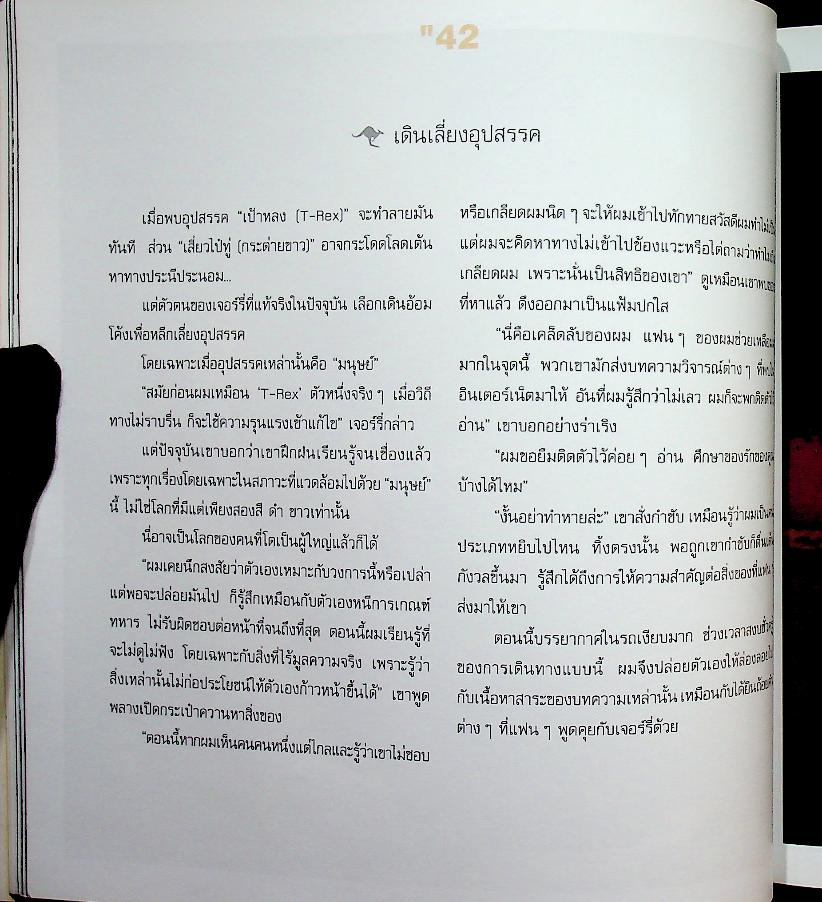 "42
เดินเลี่ยงอุปสรรค
เมื่อพบอุปสรรค “เป้าหลง (T-Rex)” จะทำลายมัน
ทันที ส่วน “เสี่ยวไป๋ทู่ (กระต่ายขาว)” อาจกระโดดโลดเต้น
หาทางประนีประนอม...
แต่ตัวตนของเจอร์รี่ที่แท้จริงในปัจจุบัน เลือกเดินอ้อม
โค้งเพื่อหลีกเลี่ยงอุปสรรค
โดยเฉพาะเมื่ออุปสรรคเหล่านั้นคือ “มนุษย์”
“สมัยก่อนผมเหมือน ‘T-Rex’ ตัวหนึ่งจริง ๆ เมื่อวิถี
ทางไม่ราบรื่น ก็จะใช้ความรุนแรงเข้าแก้ไข” เจอร์รี่กล่าว
แต่ปัจจุบันเขาบอกว่าเขาฝึกฝนเรียนรู้จนเชื่องแล้ว
เพราะทุกเรื่องโดยเฉพาะในสภาวะที่แวดล้อมไปด้วย “มนุษย์”
นี้ ไม่ใช่โลกที่มีแต่เพียงสองสี ดำ ขาวเท่านั้น
นี่อาจเป็นโลกของคนที่โตเป็นผู้ใหญ่แล้วก็ได้
“ผมเคยนึกสงสัยว่าตัวเองเหมาะกับวงการนี้หรือเปล่า
แต่พอจะปล่อยมันไป ก็รู้สึกเหมือนกับตัวเองหนีการเกณฑ์
ทหาร ไม่รับผิดชอบต่อหน้าที่จนถึงที่สุด ตอนนี้ผมเรียนรู้ที่
จะไม่ดูไม่ฟัง โดยเฉพาะกับสิ่งที่ไร้มูลความจริง เพราะรู้ว่า
สิ่งเหล่านั้นไม่ก่อประโยชน์ให้ตัวเองก้าวหน้าขึ้นได้” เขาพูด
พลางเปิดกระเป๋าควานหาสิ่งของ
“ตอนนี้หากผมเห็นคนคนหนึ่งแต่ไกลและรู้ว่าเขาไม่ชอบ
หรือเกลียดผมนิด ๆ จะให้ผมเข้าไปทักทายสวัสดีผมทำไม่
แต่ผมจะคิดหาทางไม่เข้าไปข้องแวะหรือไต่ถามว่าทำไม
เกลียดผม เพราะนั่นเป็นสิทธิของเขา” ดูเหมือนเขาพบของ
ที่หาแล้ว ดึงออกมาเป็นแฟ้มปกใส
“นี่คือเคล็ดลับของผม แฟน ๆ ของผมช่วยเหลือ
มากในจุดนี้ พวกเขามักส่งบทความวิจารณ์ต่าง ๆ ที่
อินเตอร์เน็ตมาให้ อันที่ผมรู้สึกว่าไม่เลว ผมก็จะพกติดตัว
อ่าน” เขาบอกอย่างร่าเริง
“ผมขอยืมติดตัวไว้ค่อย ๆ อ่าน ศึกษาของรักของคุณ
บ้างได้ไหม”
“งั้นอย่าทำหายล่ะ” เขาสั่งกำชับ เหมือนรู้ว่าผมเป็น
ประเภทหยิบไปไหน ทิ้งตรงนั้น พอถูกเขากำชับก็ตื่นเต้น
กังวลขึ้นมา รู้สึกได้ถึงการให้ความสำคัญต่อสิ่งของที่แฟน
ส่งมาให้เขา
ตอนนี้บรรยากาศในรถเงียบมาก ช่วงเวลาสงบ
ของการเดินทางแบบนี้ ผมจึงปล่อยตัวเองให้ล่องลอย
กับเนื้อหาสาระของบทความเหล่านั้น เหมือนกับได้ยิน
ต่าง ๆ ที่แฟน ๆ พูดคุยกับเจอร์รี่ด้วย